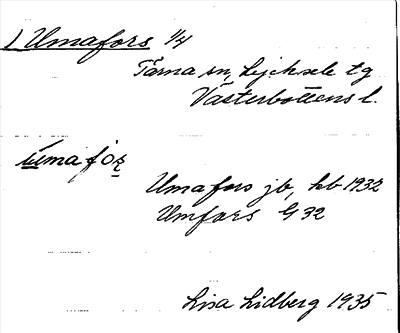 1 Umafors 1/4
Tärna sn, Lycksele tg
Västerbottens l.
ʉmafoʂ
Umafors jb, hb 1932
Umfors G 32
Lisa Lidberg 1935